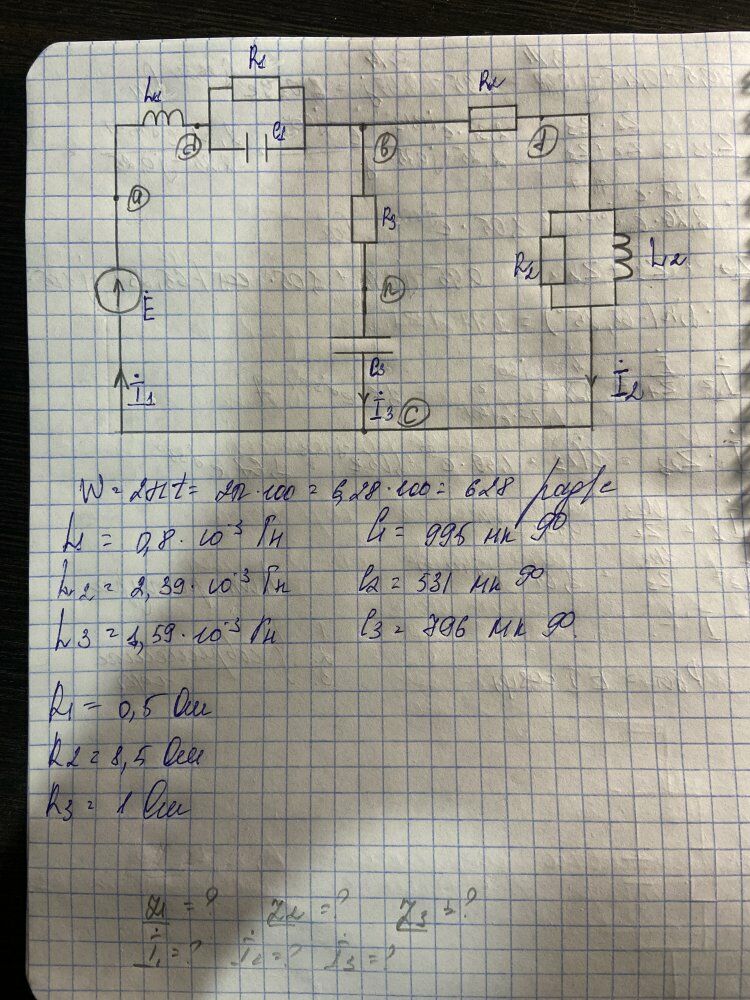 R1
L1
d
C1
R2
b
f
a
R3
n
R2
L2
Ė
C3
İ1
İ3
c
İ2
W = 2πf = 2π·100 = 6,28·100 = 628 рад/с
L1 = 0,8·10⁻³ Гн C1 = 995 мкФ
L2 = 2,39·10⁻³ Гн C2 = 531 мкФ
L3 = 1,59·10⁻³ Гн C3 = 796 мкФ.
R1 = 0,5 Ом
R2 = 8,5 Ом
R3 = 1 Ом
Z1 = ? Z2 = ? Z3 = ?
İ1 = ? İ2 = ? İ3 = ?